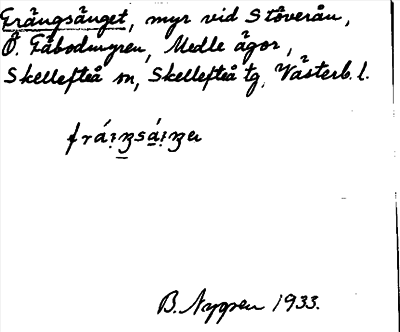 Frängsänget, myr vid Stöverån,
Ö. Fäbodmyren, Medle ägor,
Skellefteå sn, Skellefteå tg, Västerb. l.
B. Nygren 1933.